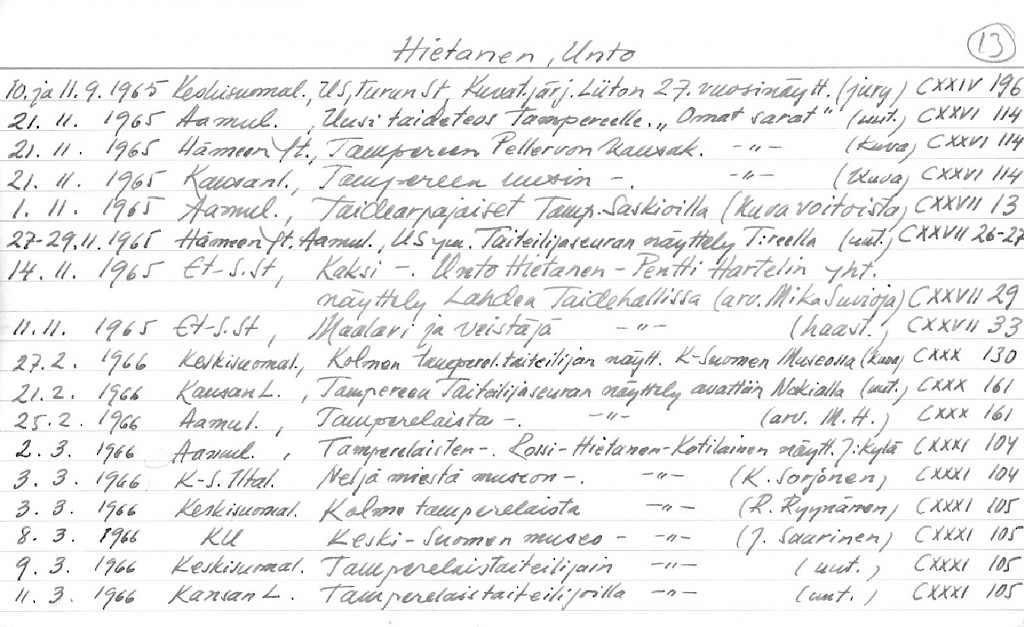 Hietanen, Unto 13
10. ja 11. 9. 1965 Keskisuomal., US, Turun St, Kuvat.järj. Liiton 27. vuosinäytt. (jury) CXXIV 196
21. 11. 1965 Aamul., Uusi taideteos Tampereelle. „Omat sarat" (uut.) CXXVI 114
21. 11. 1965 Hämeen Yt., Tampereen Pellervon Kansak. -"- (Kuva) CXXVI 114
21. 11. 1965 Kansanl., Tampereen uusin -. -"- (Kuva) CXXVI 114
1. 11. 1965 Aamul., Taidearpajaiset Tamp. Saskioilla (Kuva voitoista) CXXVII 13
27-29.11. 1965 Hämeen Yt. Aamul., US ym. Taiteilijaseuran näyttely T:reella (uut.) CXXVII 26-27
14. 11. 1965 Et-S.St, Kaksi -. Unto Hietanen - Pentti Hartelin yht.
näyttely Lahden Taidehallissa (arv. Mika Suvioja) CXXVII 29
11. 11. 1965 Et-S.St, Maalari ja veistäjä -"- (haast.) CXXVII 33
27. 2. 1966 Keskisuomal., Kolmen tamperel. taiteilijan näytt. K-Suomen Museossa (kuva) CXXX 130
21. 2. 1966 Kansan L., Tampereen Taiteilijaseuran näyttely avattiin Nokialla (uut.) CXXX 161
25. 2. 1966 Aamul., Tamperelaista -. -"- (arv. M.H.) CXXX 161
2. 3. 1966 Aamul., Tamperelaisten -. Rossi-Hietanen-Kotilainen näytt. J:kylä CXXXI 104
3. 3. 1966 K-S. Iltal. Neljä miestä museon -. -"- (K. Sorjonen) CXXXI 104
3. 3. 1966 Keskisuomal. Kolme tamperelaista -"- (R. Rypnänen) CXXXI 105
8. 3. 1966 KU Keski-Suomen museo - -"- (J. Saarinen) CXXXI 105
9. 3. 1966 Keskisuomal. Tamperelaistaiteilijain -"- (uut.) CXXXI 105
11. 3. 1966 Kansan L. Tamperelaistaiteilijoilla -"- (uut.) CXXXI 105